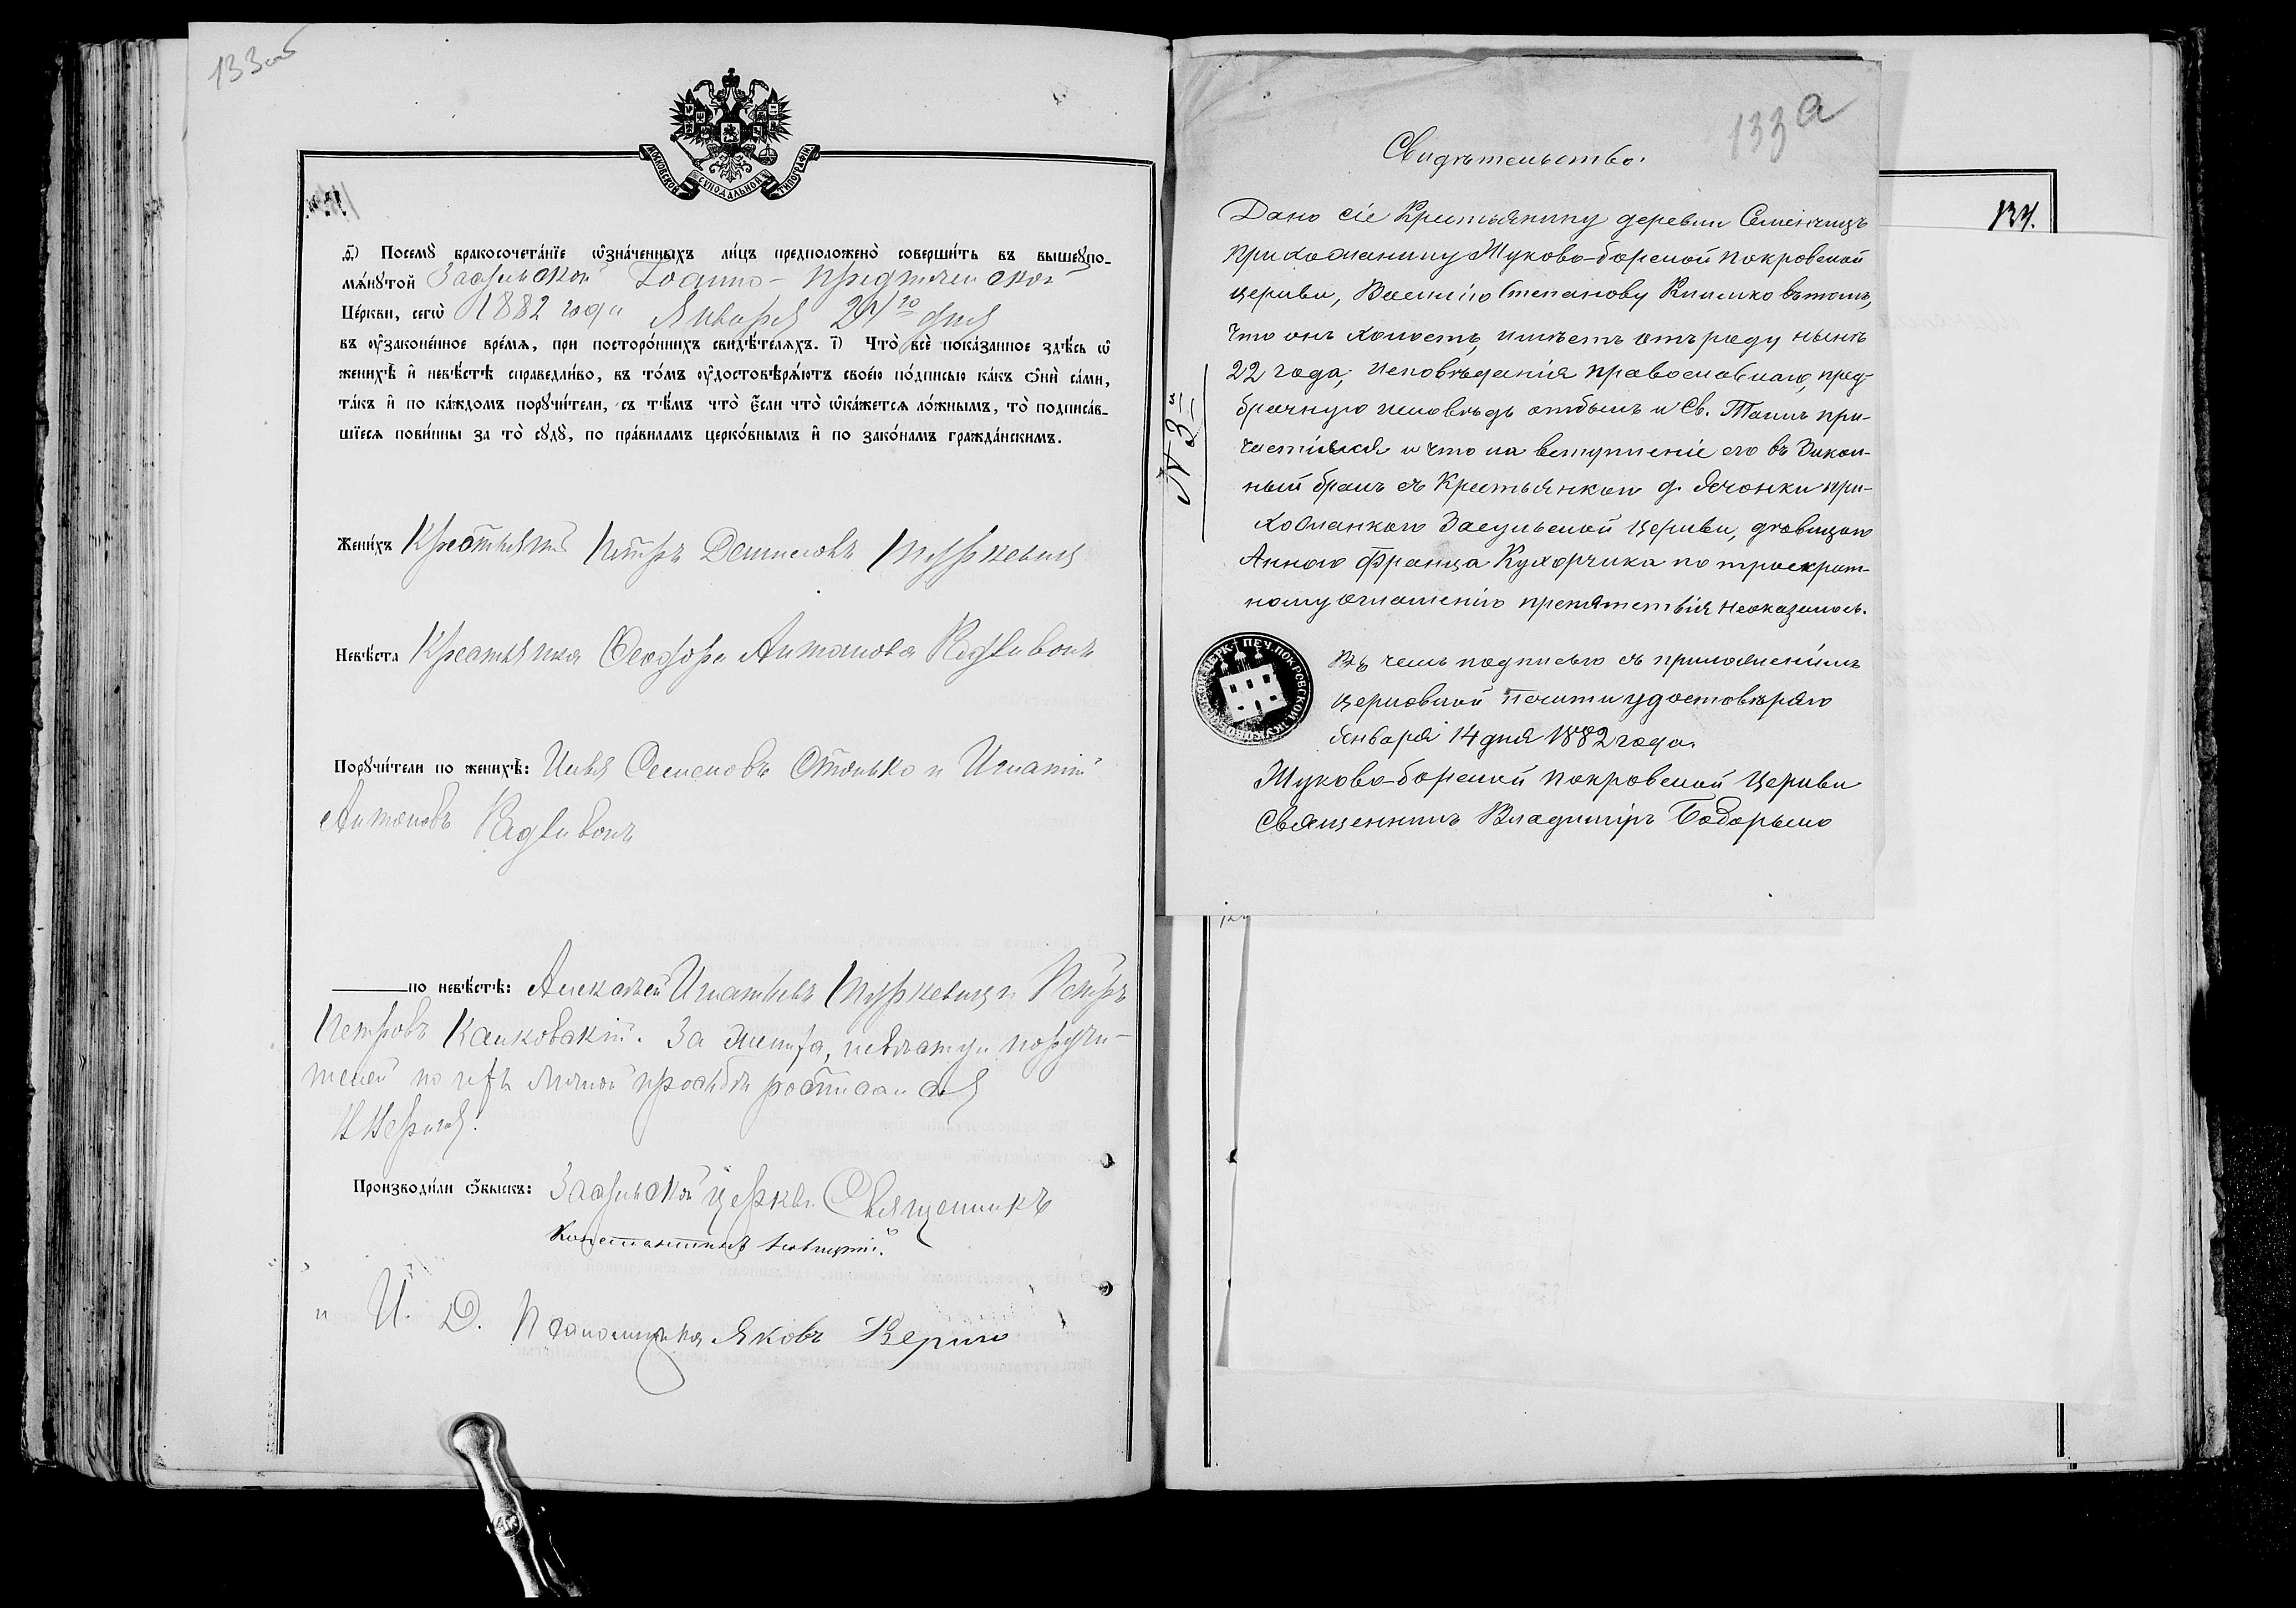 133об
МОСКОВСКОЙ СѴНОДАЛЬНОЙ ТИПОГРАФІИ
Посемꙋ̀ бракосочета́нїе ѡ҆зна́ченныхъ ли́цъ предположено̀ соверши́ть въ вышеꙋпо-
мѧ́нꙋтой Засульской Іоанно-Предтеченской
Це́ркви, сегѡ̀ 1882 года Января 24го дня
въ ᲂу҆законе́нное вре́мѧ, при посторо́ннихъ свидѣ́телѧхъ. і҃) Что̀ всѐ пока́занное здѣ́сь ѡ҆
женихѣ̀ и҆ невѣ́стѣ справедли́во, въ то́мъ ᲂу҆достовѣрѧ́ютъ свое́ю по́дписью ка́къ ѻ҆нѝ са́ми,
та́къ и҆ по ка́ждомъ порꙋчи́тели, съ тѣ́мъ что̀ є҆́сли что̀ ѡ҆ка́жетсѧ ло́жнымъ, то̀ подписа́в-
шїесѧ пови́нны за то̀ сꙋдꙋ̀, по пра́виламъ церко́внымъ и҆ по зако́намъ гражда́нскимъ.
Жени́хъ Крестьянинъ Петръ Данииловъ
Невѣ́ста Крестьянка Ѳеодора Антонова Радивонъ
Порꙋчи́тели по женихѣ̀: Илья Семеновъ и Игнатій
Антоновъ Радивонъ
по невѣ́стѣ: Алексѣй Игнатьевъ и Петръ
Петровъ За жениха, невѣсту и поручи-
телей по ихъ личной просьбѣ росписался
Производи́ли ѻ҆́быскъ: Засульской церкви Священникъ
Константинъ
и И. Д. Псаломщика Яковъ
133а
Свидѣтельство.
Дано сіе Крестьянину деревни Семенчицъ
прихожанину Жуково-борской Покровской
церкви, Василію Степанову Климко въ томъ,
что онъ холостъ, имѣетъ отъ роду нынѣ
22 года, исповѣданія православнаго, пред-
брачную исповѣдь отбылъ и Св. Таинъ при-
частился и что на вступленіе его въ Закон-
ный бракъ съ Крестьянкою д. Ячонки при-
хожанкою Засульской церкви, дѣвицею
Анною Франца Кухорчика по троекрат-
ному оглашенію препятствія неоказалось.
Въ чемъ подписью съ приложеніемъ
церковной печати удостовѣряю
Января 14 дня 1882 года.
Жуково-борской Покровской Церкви
Священникъ Владиміръ
№ 3й
ПЕЧ. ПОКРОВСКОЙ
134.